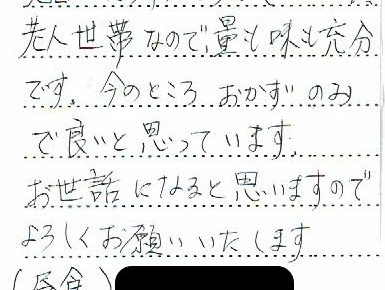 老人世帯なので、量も味も充分
です。今のところ おかずのみ
で良いと思っています。
お世話になると思いますので
よろしくお願いいたします
(昼食)